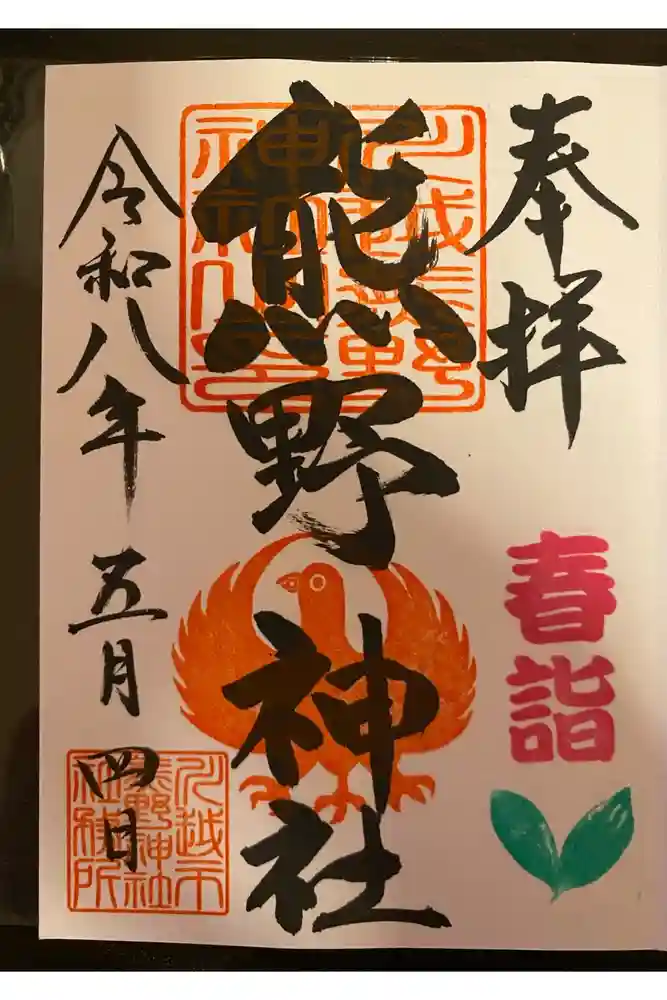 奉拝
春詣
熊野神社
令和八年五月四日
川越市
熊野神社
社務所